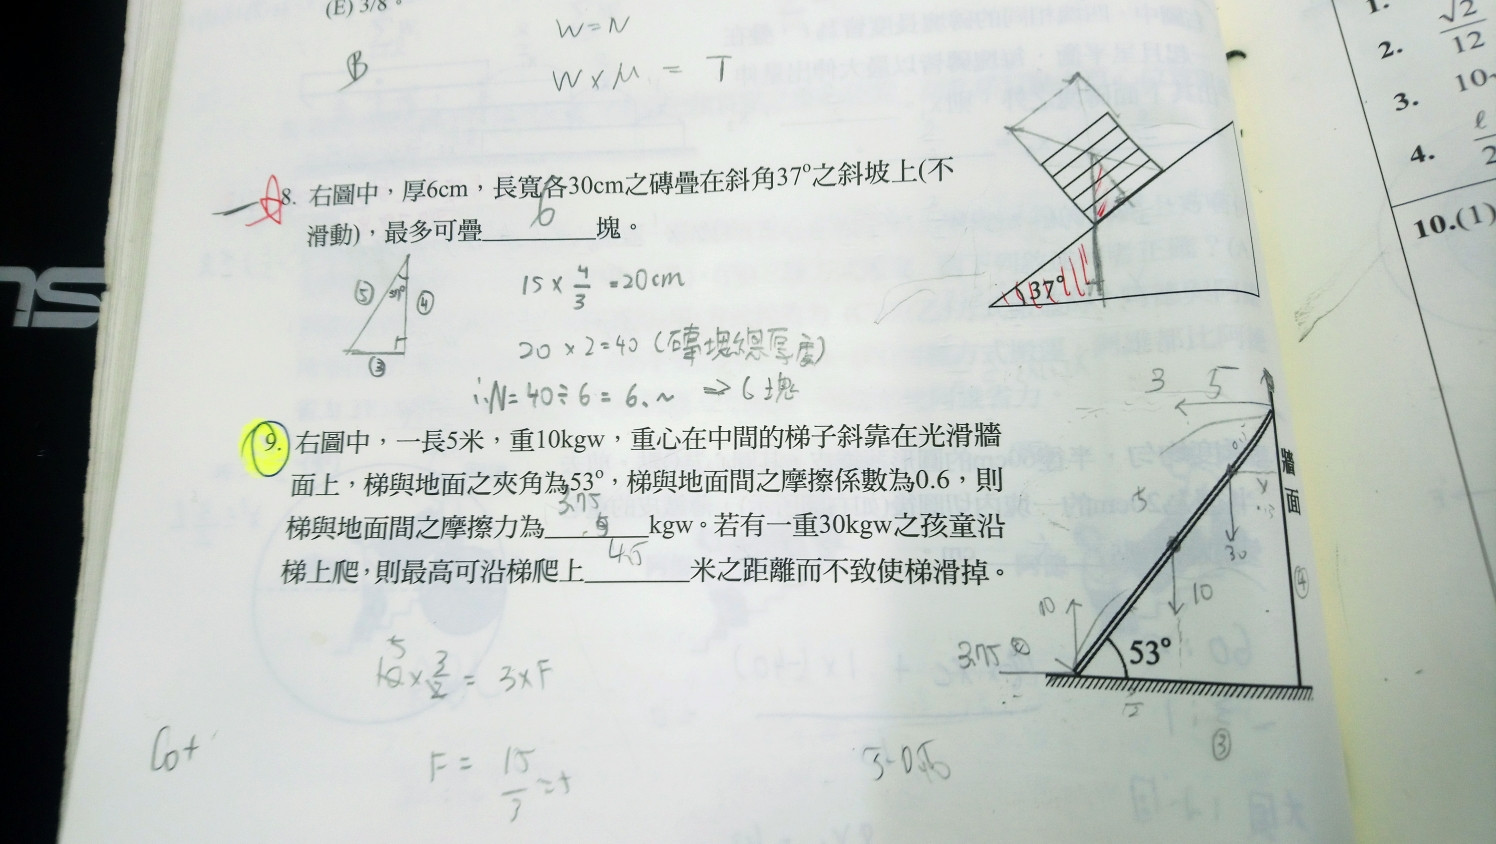 (E) 3/8。
W=N
B
W×μ = T
1.
2. √2/12
3. 10
4. ℓ/2
10.(1)
8. 右圖中，厚6cm，長寬各30cm之磚疊在斜角37°之斜坡上(不
滑動)，最多可疊 6 塊。
37°
⑤ 37° ④
③
15 × 4/3 =20cm
20 × 2=40 (磚塊總厚度)
∴N=40÷6=6.~ ⇒ 6塊
9. 右圖中，一長5米，重10kgw，重心在中間的梯子斜靠在光滑牆
面上，梯與地面之夾角為53°，梯與地面間之摩擦係數為0.6，則
梯與地面間之摩擦力為 3.75 kgw。若有一重30kgw之孩童沿
梯上爬，則最高可沿梯爬上 4.5 米之距離而不致使梯滑掉。
3
5
牆面
5
30
④
10
10
3.75
53°
③
× 3/2 = 3×F
F = 15/3